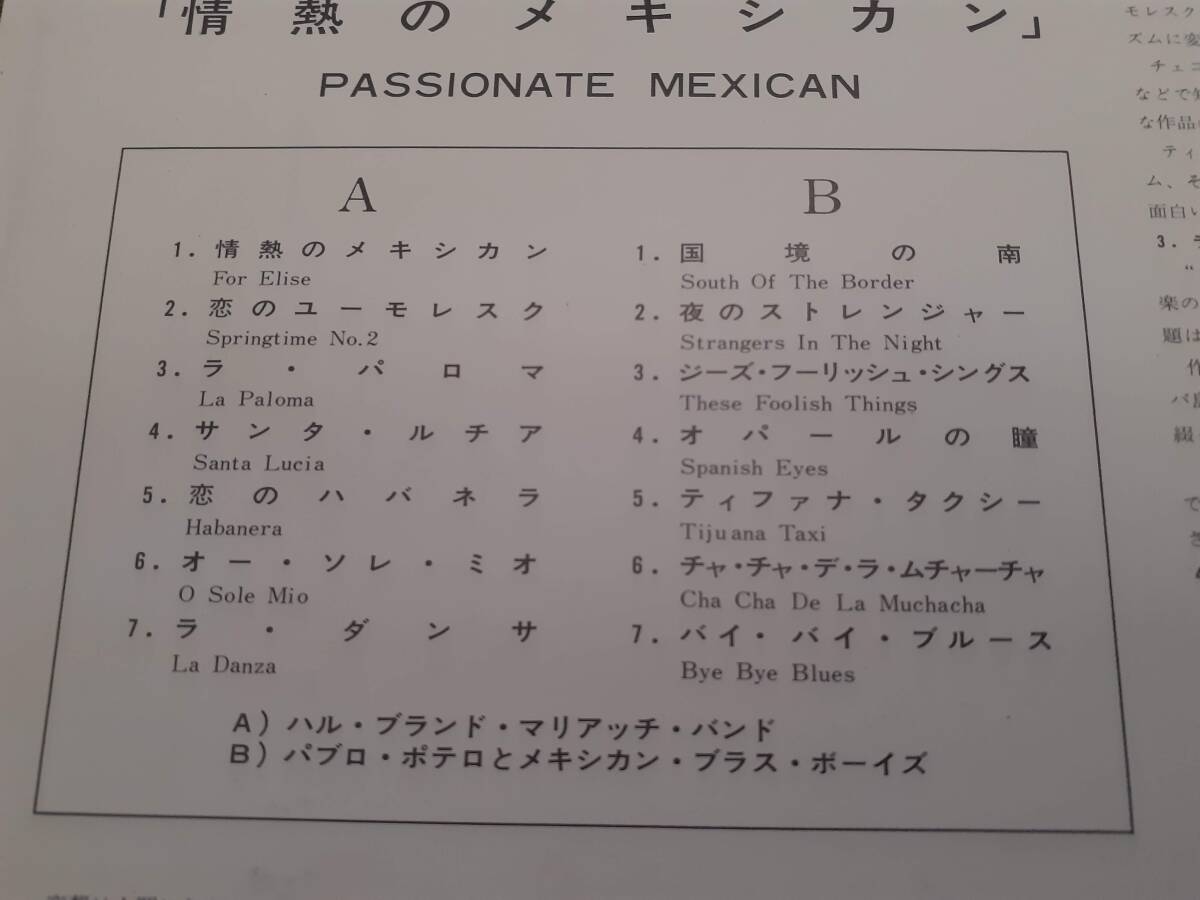 「情熱のメキシカン」
PASSIONATE MEXICAN
A
1. 情熱のメキシカン
For Elise
2. 恋のユーモレスク
Springtime No.2
3. ラ・パロマ
La Paloma
4. サンタ・ルチア
Santa Lucia
5. 恋のハバネラ
Habanera
6. オー・ソレ・ミオ
O Sole Mio
7. ラ・ダンサ
La Danza
B
1. 国境の南
South Of The Border
2. 夜のストレンジャー
Strangers In The Night
3. ジーズ・フーリッシュ・シングス
These Foolish Things
4. オパールの瞳
Spanish Eyes
5. ティファナ・タクシー
Tijuana Taxi
6. チャ・チャ・デ・ラ・ムチャーチャ
Cha Cha De La Muchacha
7. バイ・バイ・ブルース
Bye Bye Blues
A) ハル・ブランド・マリアッチ・バンド
B) パブロ・ポテロとメキシカン・ブラス・ボーイズ
モレスク
ズムに変
チェコ
などで知
な作品
ティ
ム、そ
面白い
3. ラ
楽の
題は
作
綴
で